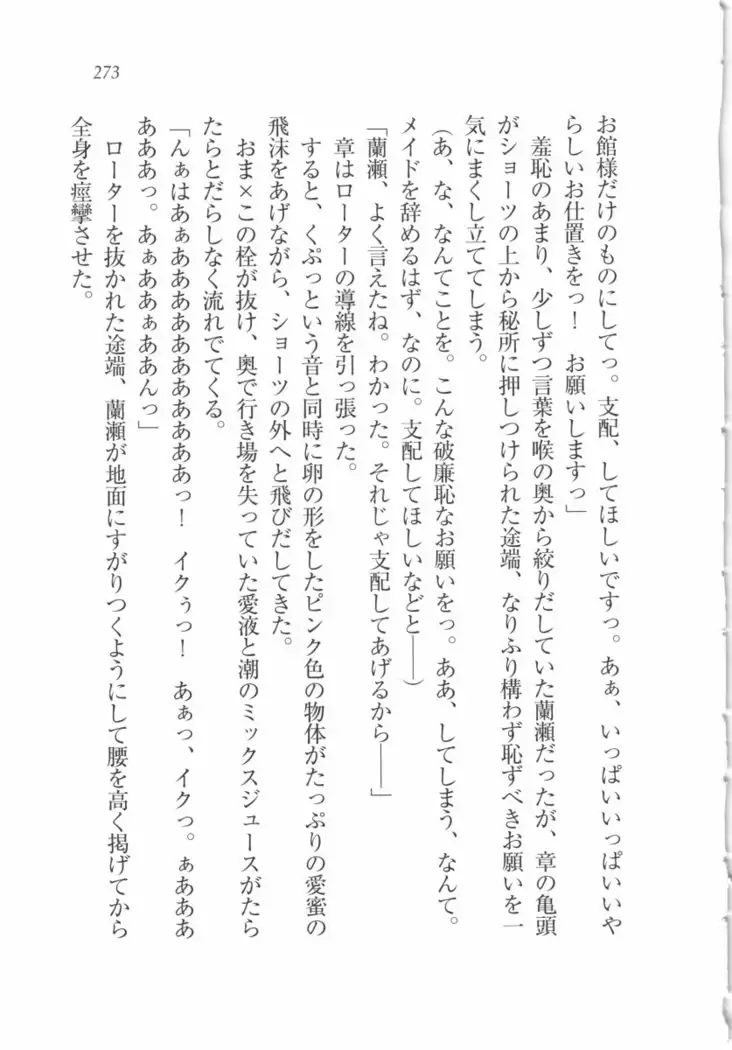 273
お館様だけのものにしてっ。支配、してほしいですっ。あぁ、いっぱいいっぱいいや
らしいお仕置きをっ！　お願いしますっ」
　羞恥のあまり、少しずつ言葉を喉の奥から絞りだしていた蘭瀬だったが、章の亀頭
がショーツの上から秘所に押しつけられた途端、なりふり構わず恥ずべきお願いを一
気にまくし立ててしまう。
（あ、な、なんてことを。こんな破廉恥なお願いをっ。ああ、してしまう、なんて。
メイドを辞めるはず、なのに。支配してほしいなどと――）
「蘭瀬、よく言えたね。わかった。それじゃ支配してあげるから――」
　章はローターの導線を引っ張った。
　すると、くぷっという音と同時に卵の形をしたピンク色の物体がたっぷりの愛蜜の
飛沫をあげながら、ショーツの外へと飛びだしてきた。
　おま×この栓が抜け、奥で行き場を失っていた愛液と潮のミックスジュースがたら
たらとだらしなく流れでてくる。
「んぁはあぁああああああああああっ！　イクぅっ！　あぁっ、イクっ。ぁあああ
あああっ。あぁああぁああんっ」
　ローターを抜かれた途端、蘭瀬が地面にすがりつくようにして腰を高く掲げてから
全身を痙攣させた。